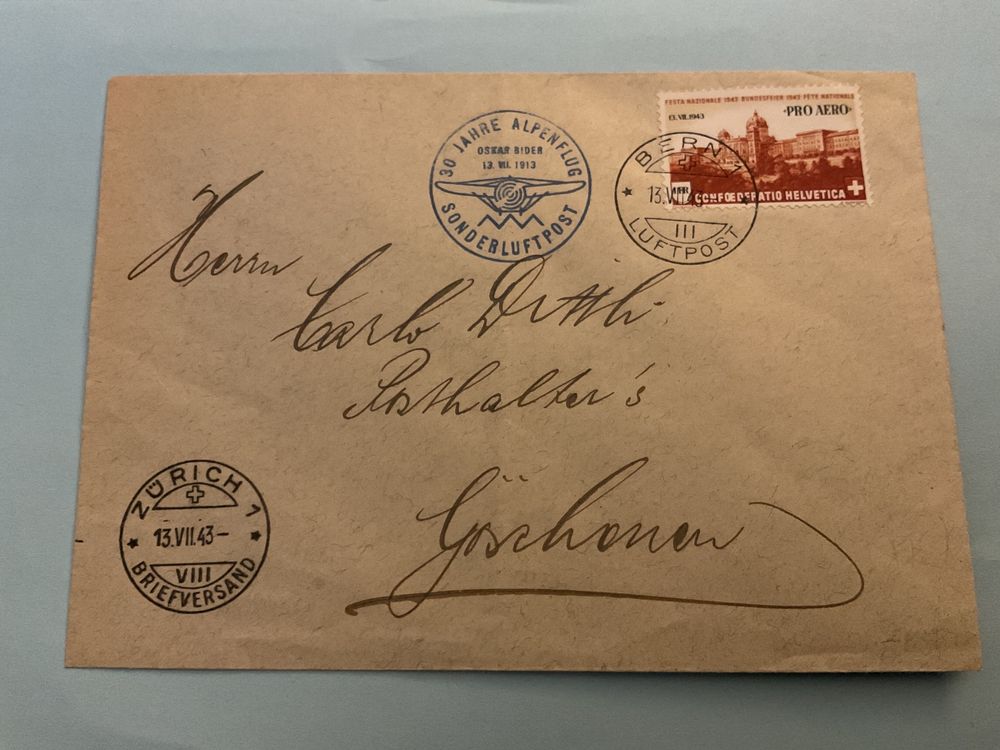 30 JAHRE ALPENFLUG
OSKAR BIDER
13. VII. 1913
SONDERLUFTPOST
FESTA NAZIONALE 1943 BUNDESFEIER 1943 FÊTE NATIONALE
13.VII.1943
PRO AERO
CONFOEDERATIO HELVETICA
BERN 1
13.VII.43
III
LUFTPOST
Herrn
Carlo Dittli
Posthalter's
Göschenen
ZÜRICH 1
13.VII.43-
VIII
BRIEFVERSAND